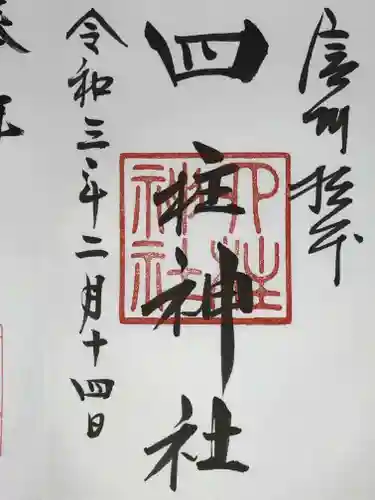 信州松本
四柱神社
四柱神社
令和三年二月十四日
奉拝